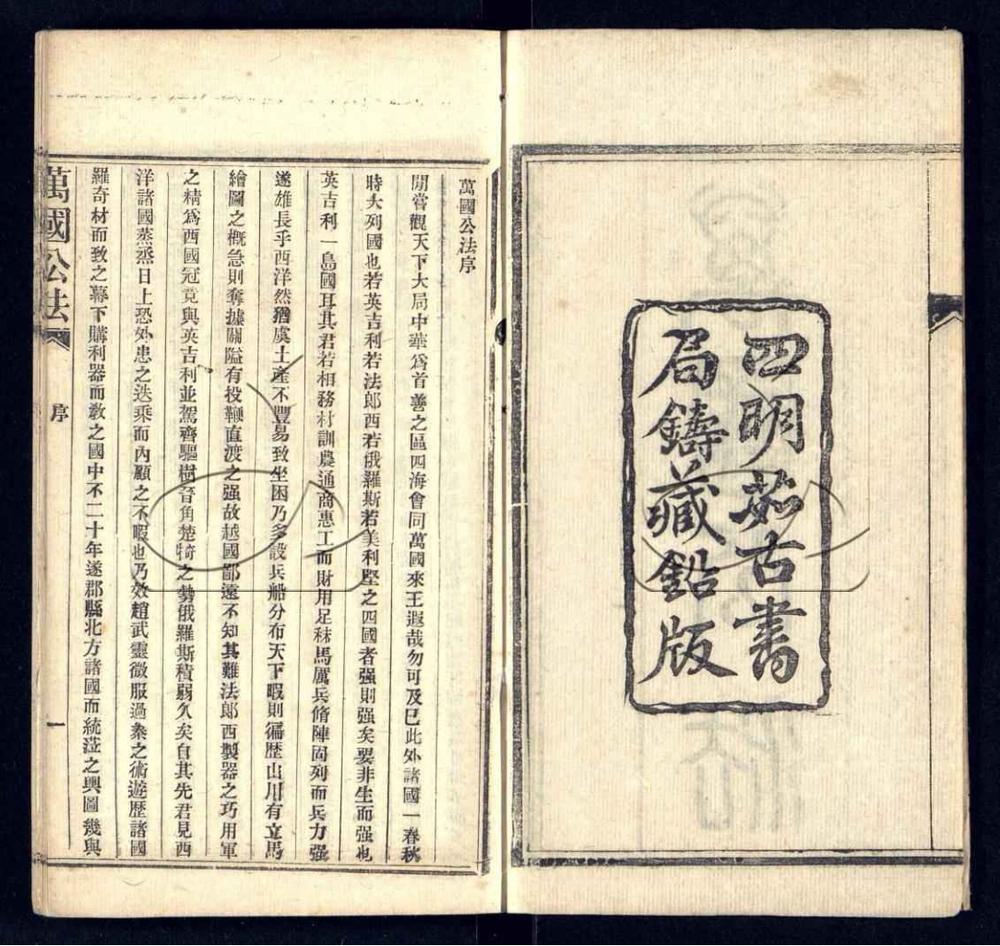 四明茹古書
局鑄藏鉛版
萬國公法序
閒嘗觀天下大局中華為首善之區四海會同萬國來王遐哉勿可及已此外諸國一春秋
時大列國也若英吉利若法郎西若俄羅斯若美利堅之四國者强則强矣要非生而强也
英吉利一島國耳其君若相務材訓農通商惠工而財用足秣馬厲兵脩陣固列而兵力强
遂雄長乎西洋然猶虞土產不豐易致坐困乃多設兵船分布天下暇則徧歷山川有立馬
繪圖之概急則奪據關隘有投鞭直渡之强故越國鄙遠不知其難法郎西製器之巧用軍
之精爲西國冠竟與英吉利並駕齊驅樹晉角楚犄之勢俄羅斯積弱久矣自其先君見西
洋諸國蒸蒸日上恐外患之迭乘而內顧之不暇也乃效趙武靈微服過秦之術遊歷諸國
羅奇材而致之幕下購利器而敎之國中不二十年遂郡縣北方諸國而統蒞之輿圖幾與
萬國公法
序
一